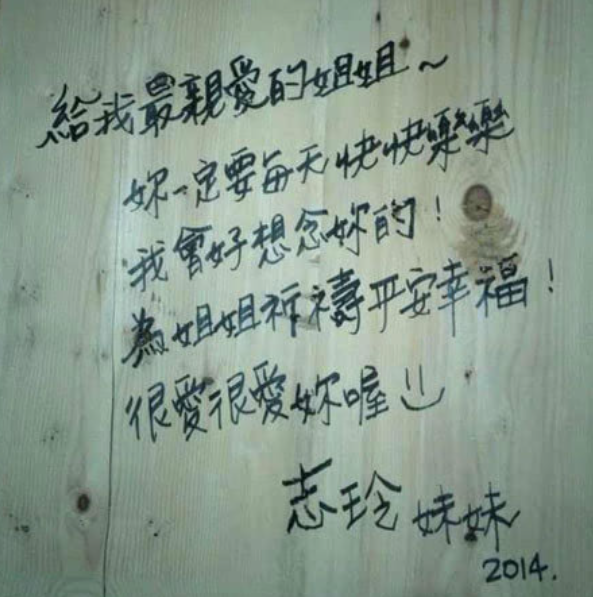 給我最親愛的姐姐~
妳一定要每天快快樂樂
我會好想念妳的!
為姐姐祈禱平安幸福!
很愛很愛妳喔
志玲 妹妹
2014.